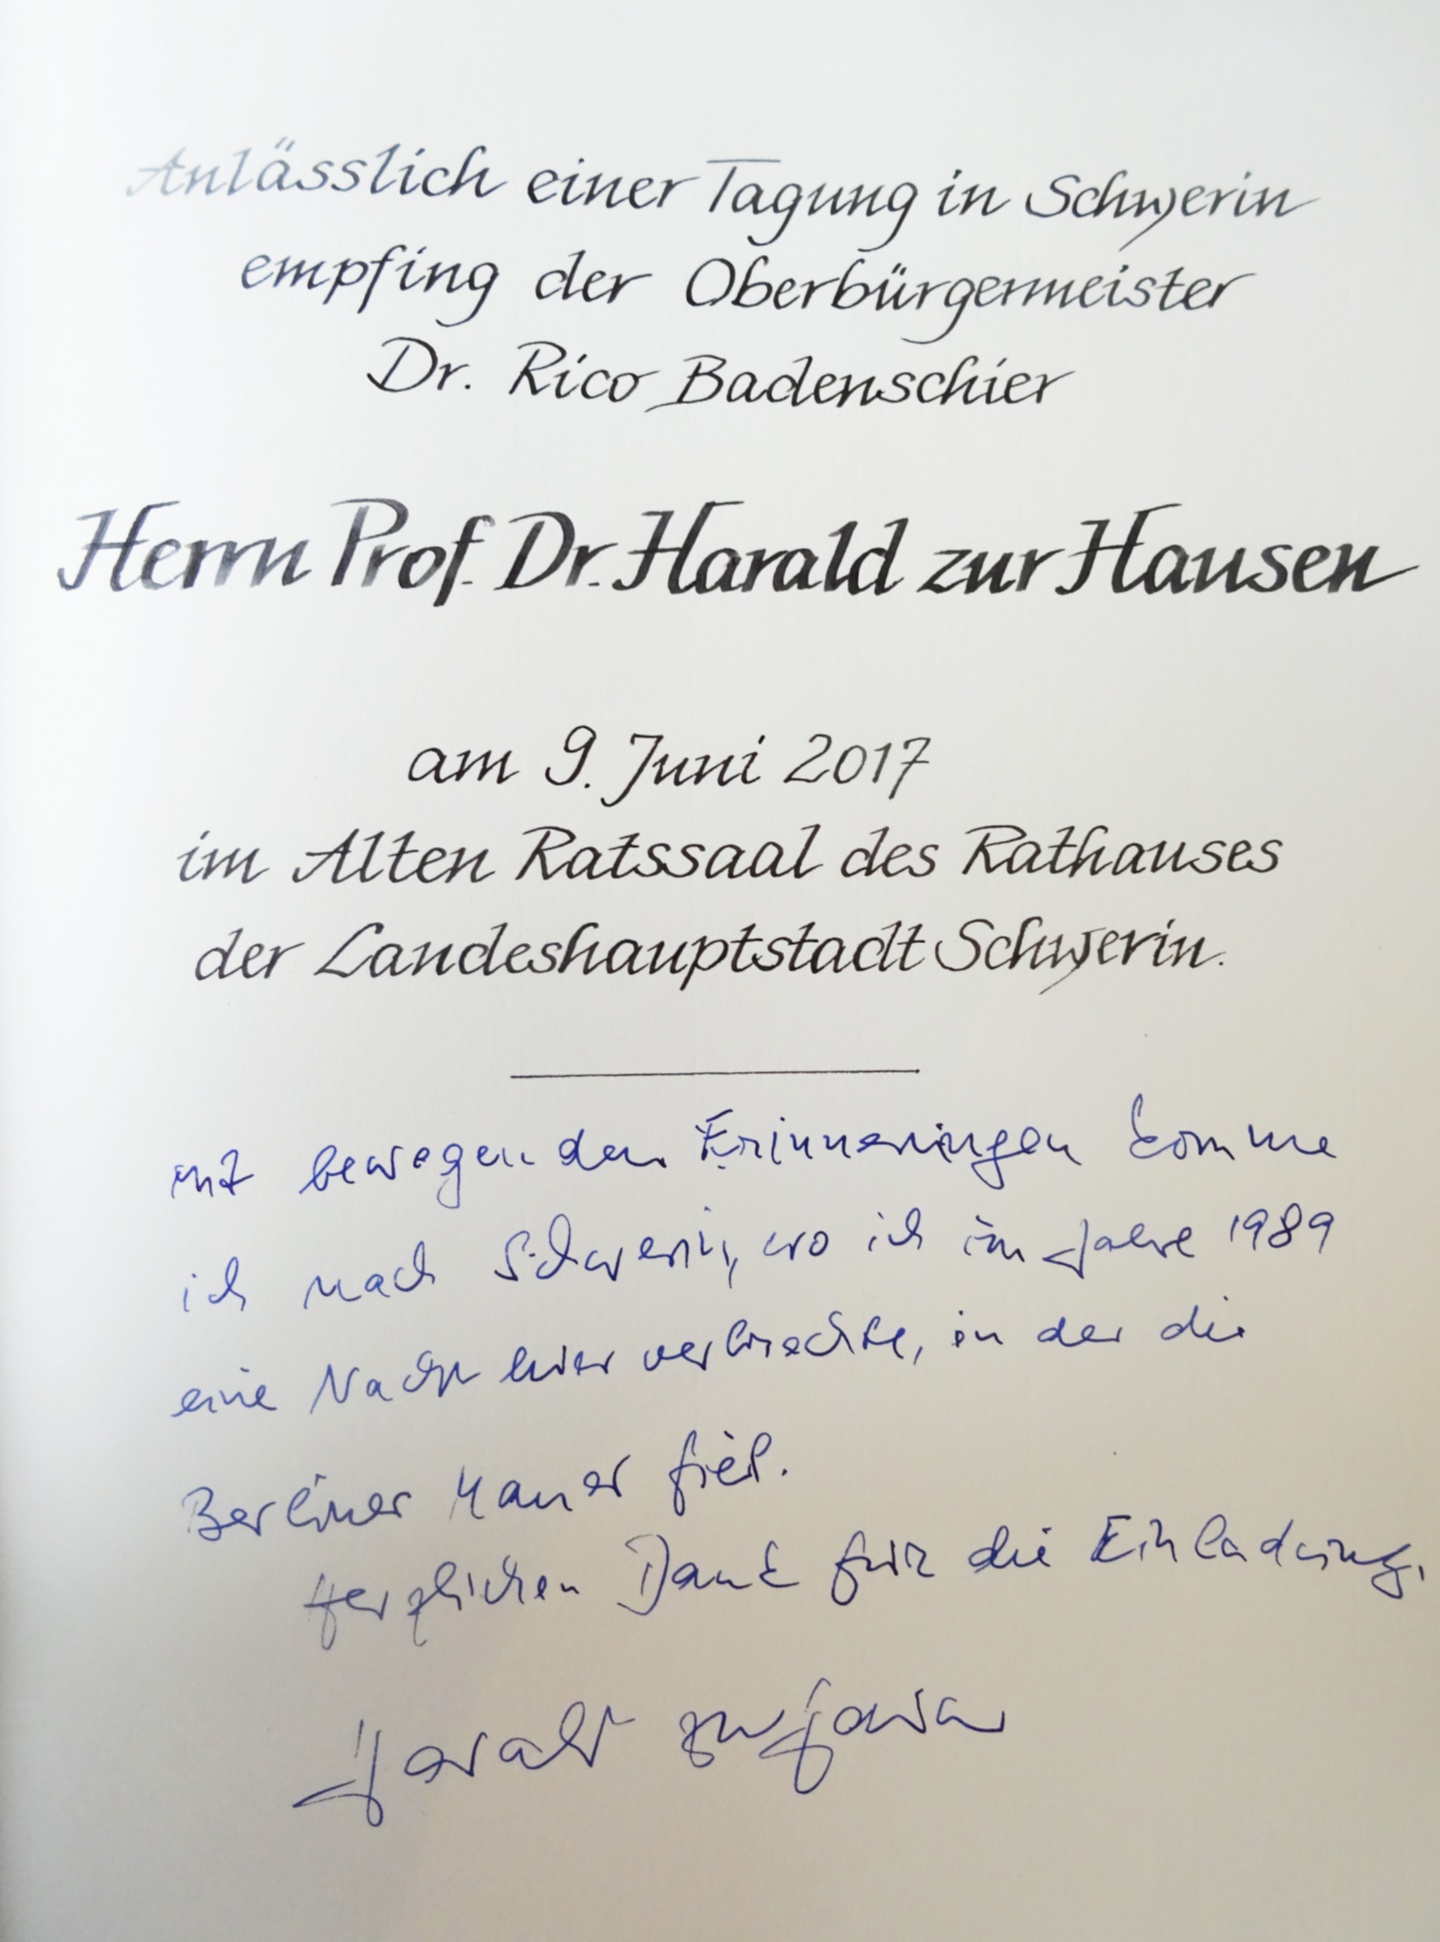 Anlässlich einer Tagung in Schwerin
empfing der Oberbürgermeister
Dr. Rico Badenschier
Herrn Prof. Dr. Harald zur Hausen
am 9. Juni 2017
im Alten Ratssaal des Rathauses
der Landeshauptstadt Schwerin.
Mit bewegenden Erinnerungen komme
ich nach Schwerin, wo ich im Jahre 1989
eine Nacht hier verbrachte, in der die
Berliner Mauer fiel.
Herzlichen Dank für die Einladung.
Harald zur Hausen